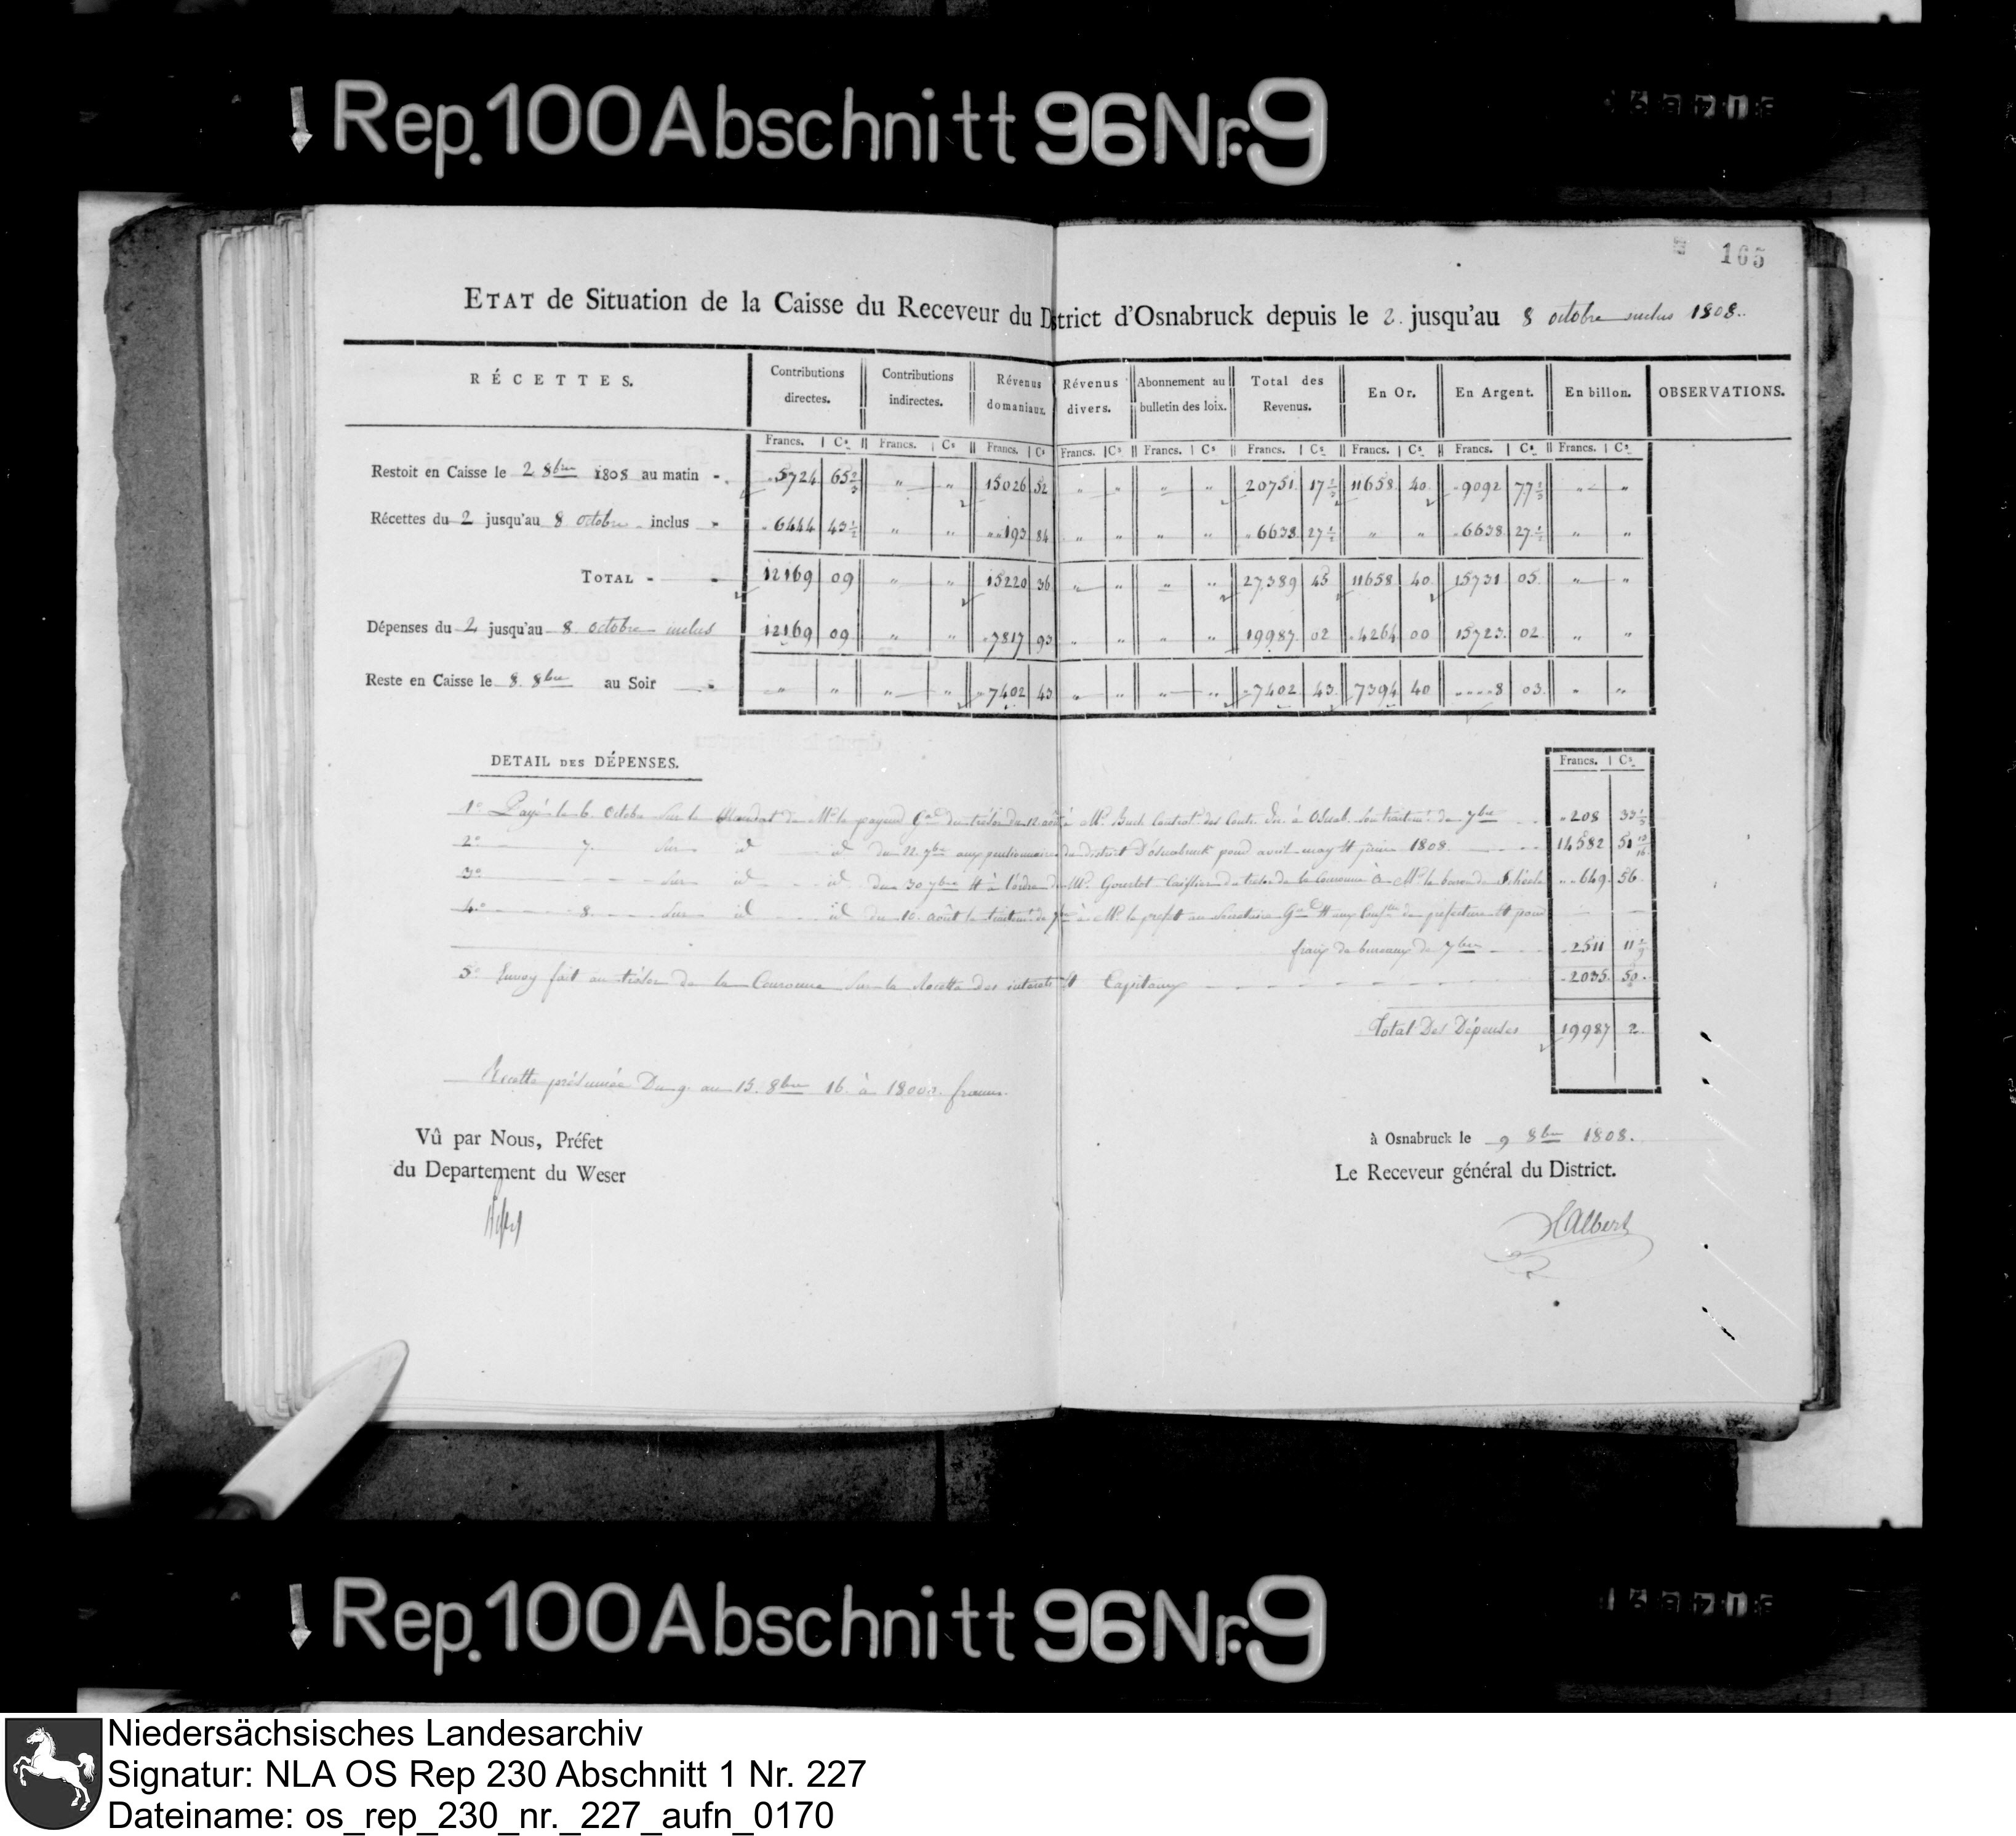 Rep. 100 Abschnitt 96 Nr. 9
165
ETAT de Situation de la Caisse du Receveur du District d'Osnabruck depuis le 2. jusqu'au 8 octobre inclus 1808.
RÉCETTES. Contributions directes. Contributions indirectes. Révenus domaniaux. Révenus divers. Abonnement au bulletin des loix. Total des Revenus. En Or. En Argent. En billon. OBSERVATIONS.
Francs. Cs Francs. Cs Francs. Cs Francs. Cs Francs. Cs Francs. Cs Francs. Cs Francs. Cs Francs. Cs
Restoit en Caisse le 2 8bre 1808 au matin 5724 65 2/3 " " 15026 52 " " " " 20751 17 11658 40 9092 77 " "
Récettes du 2 jusqu'au 8 octobre inclus 6444 43 " " 193 84 " " " " 6638 27 " " 6638 27 " "
TOTAL 12169 09 " " 15220 36 " " " " 27389 45 11658 40 15731 05 " "
Dépenses du 2 jusqu'au 8 octobre inclus 12169 09 " " 7817 93 " " " " 19987 02 4264 00 15723 02 " "
Reste en Caisse le 8. 8bre au Soir " " " " 7402 43 " " " " 7402 43 7394 40 8 03 " "
DETAIL DES DÉPENSES. Francs. Cs
1º Payé le 6. Octobre Sur le Mandat de Mr le payeur Gal du trésor du 12 août à Mr. Bush Controlr des Contr. Dir. à Osnab. Son traitemt de 7bre 208 33 1/3
2º 7. Sur id id du 22. 7bre aux pentionnaires du district d'Osnabruck pour avril may et juin 1808 14582 51
3º Sur id id du 30 7bre et à l'ordre de Mr. Caissier du trésor de la Couronne à Mr le baron de 649 56
4º 8. Sur id id du 10 août le traitemt de 7bre à Mr le prefet au Secretaire Gal et aux de préfecture et pour
fraix de bureaux de 7bre 2511 11
5º Envoy fait au trésor de la Couronne Sur la Recette des interets et Capitaux 2035 50
Total Des Dépenses 19987 2
Recette présumée Du 9. au 15. 8bre 16 à 18000. francs.
Vû par Nous, Préfet
du Departement du Weser
à Osnabruck le 9 8bre 1808.
Le Receveur général du District.
Albert
Rep. 100 Abschnitt 96 Nr. 9
Niedersächsisches Landesarchiv
Signatur: NLA OS Rep 230 Abschnitt 1 Nr. 227
Dateiname: os_rep_230_nr._227_aufn_0170